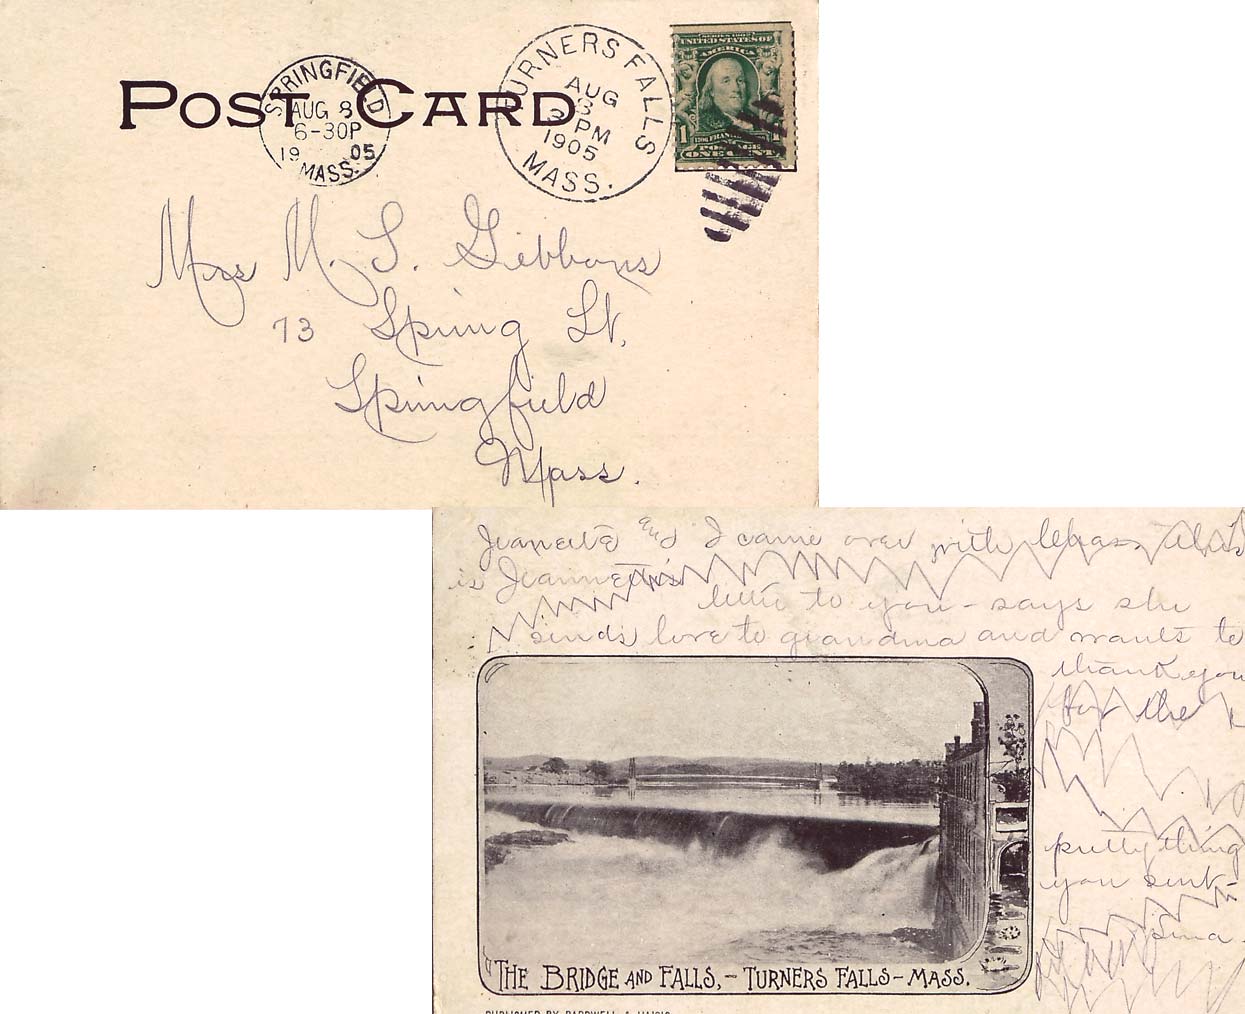 POST CARD
SPRINGFIELD
AUG 8
6-30P
19 05
MASS.
TURNERS FALLS
AUG
8
PM
1905
MASS.
SERIES 1902
UNITED STATES OF
AMERICA
1 1
ONE CENT
Mrs M. S. Gibbons
73 Spring St.
Springfield
Mass.
and I came over with
is Jeannette's
letter to you - says she
sends love to grandma and wants to
thank you
for the
pretty thing
you sent -
THE BRIDGE AND FALLS, - TURNERS FALLS - MASS.
PUBLISHED BY